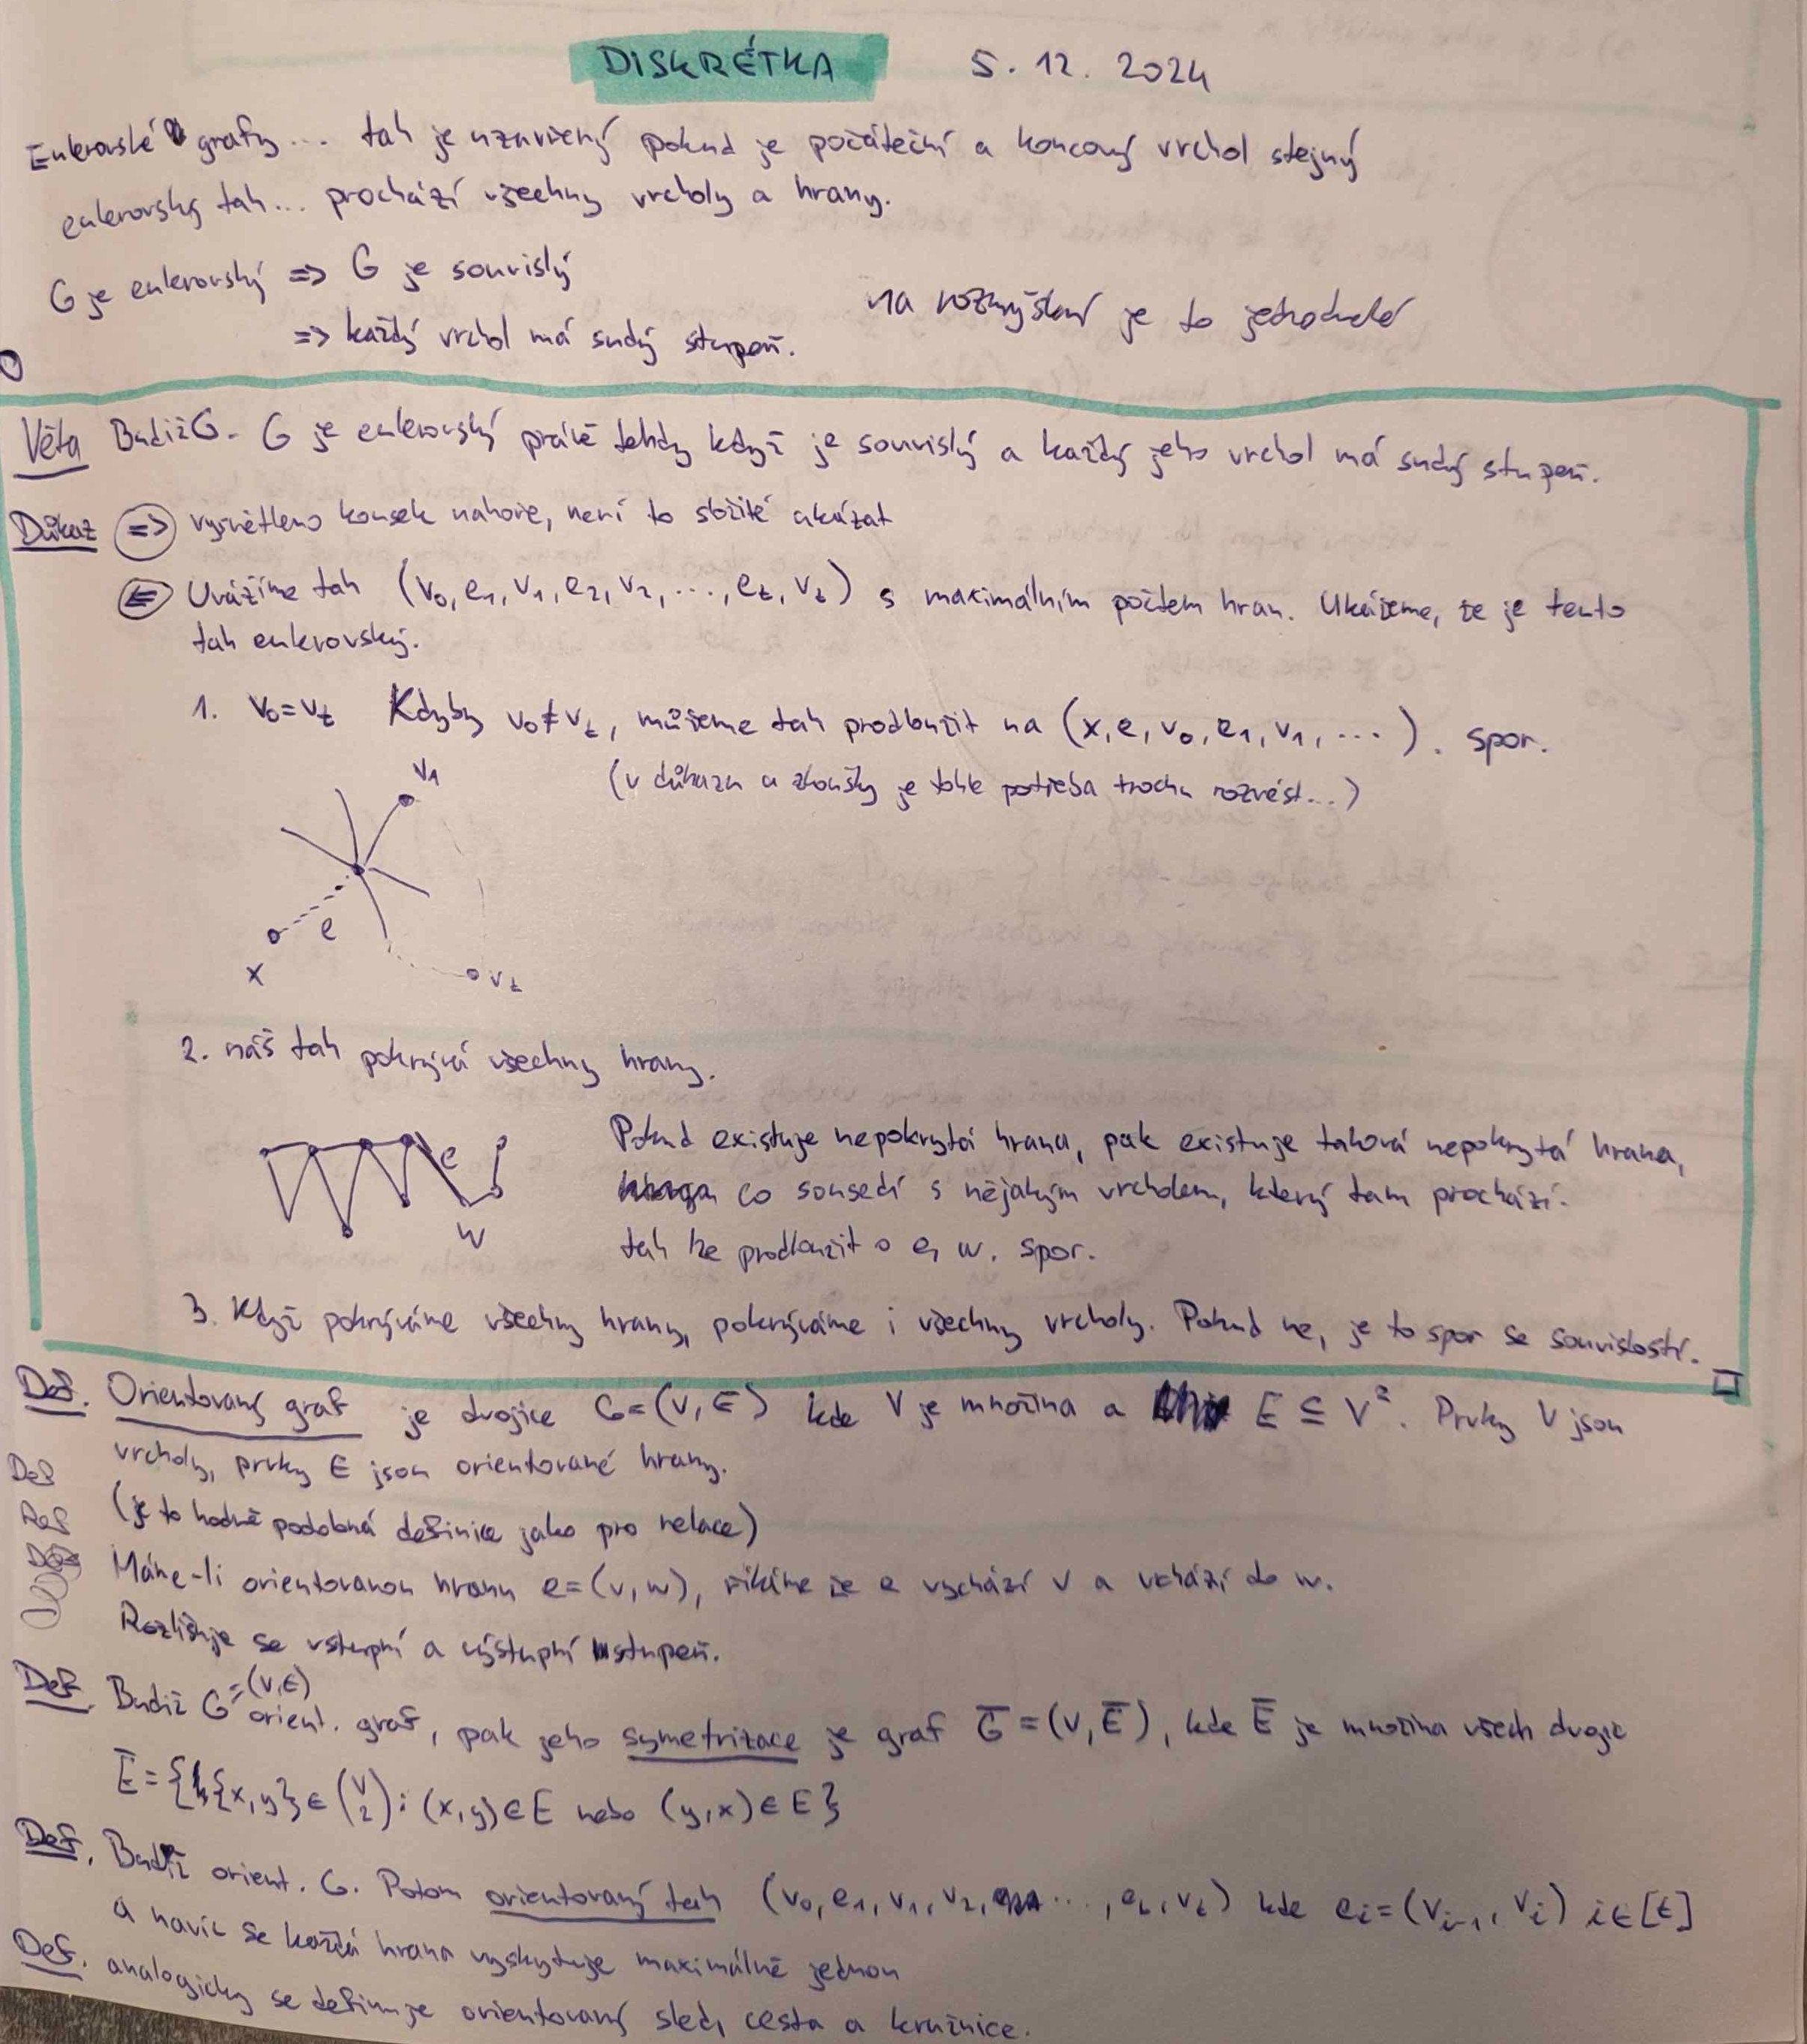 DISKRÉTKA 5. 12. 2024
Eulerovské grafy... tah je uzavřený pokud je počáteční a koncový vrchol stejný
eulerovský tah... prochází všechny vrcholy a hrany.
G je eulerovský => G je souvislý
=> každý vrchol má sudý stupeň.
na rozmyšlení je to jednoduché
Věta Budiž G. G je eulerovský právě tehdy když je souvislý a každý jeho vrchol má sudý stupeň.
Důkaz => vysvětleno kousek nahoře, není to složité ukázat
<= Uvážíme tah (v₀, e₁, v₁, e₂, v₂, ..., e_t, v_t) s maximálním počtem hran. Ukážeme, že je tento
tah eulerovský.
1. v₀ = v_t Kdyby v₀ ≠ v_t, můžeme tah prodloužit na (x, e, v₀, e₁, v₁, ...). spor.
(v důkazu u zkoušky je tohle potřeba trochu rozvést...)
v₁
e
x
v_t
2. náš tah pokrývá všechny hrany.
e
w
Pokud existuje nepokrytá hrana, pak existuje taková nepokrytá hrana,
co sousedí s nějakým vrcholem, který tam prochází.
tah lze prodloužit o e, w. spor.
3. Když pokrýváme všechny hrany, pokrýváme i všechny vrcholy. Pokud ne, je to spor se souvislostí.
Def. Orientovaný graf je dvojice G=(V,E) kde V je množina a E ⊆ V². Prvky V jsou
vrcholy, prvky E jsou orientované hrany.
Def
(je to hodně podobná definice jako pro relace)
Def
Máme-li orientovanou hranu e=(v,w), říkáme že e vychází v a vchází do w.
Rozlišuje se vstupní a výstupní stupeň.
Def. Budiž G=(V,E) orient. graf, pak jeho symetrizace je graf G̅ = (V, E̅), kde E̅ je množina všech dvojic
E̅ = {{x,y} ∈ (V 2) : (x,y) ∈ E nebo (y,x) ∈ E}
Def. Budiž orient. G. Potom orientovaný tah (v₀, e₁, v₁, v₂, ..., e_t, v_t) kde e_i = (v_{i-1}, v_i) i ∈ [t]
a navíc se každá hrana vyskytuje maximálně jednou
Def. analogicky se definuje orientovaný sled, cesta a kružnice.